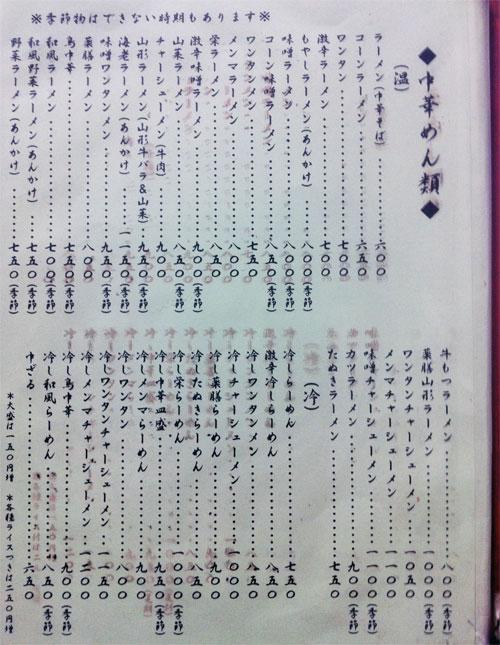 ◆中華めん類◆
(温)
ラーメン(中華そば)‥‥‥六〇〇
コーンラーメン‥‥‥六五〇
ワンタン‥‥‥七〇〇
激辛ラーメン‥‥‥七〇〇
もやしラーメン(あんかけ)‥‥‥八〇〇(季節)
味噌ラーメン‥‥‥八〇〇(季節)
コーン味噌ラーメン‥‥‥八五〇(季節)
ワンタンメン‥‥‥七五〇
メンマラーメン‥‥‥八〇〇
栄ラーメン‥‥‥八五〇
激辛味噌ラーメン‥‥‥九〇〇(季節)
山菜ラーメン‥‥‥八五〇
チャーシューメン(牛肉)‥‥‥九〇〇
山形ラーメン(山形牛バラ&山菜)‥‥‥九五〇(季節)
海老ラーメン(あんかけ)‥‥‥一一五〇(季節)
味噌ワンタンメン‥‥‥九五〇(季節)
薬膳ラーメン‥‥‥八〇〇
鳥中華‥‥‥七五〇(季節)
和風ラーメン‥‥‥七〇〇(季節)
和風野菜ラーメン(あんかけ)‥‥‥七五〇(季節)
野菜ラーメン(あんかけ)‥‥‥七五〇(季節)
※季節物はできない時期もあります※
牛もつラーメン‥‥‥八〇〇(季節)
薬膳山形ラーメン‥‥‥一〇五〇(季節)
ワンタンチャーシューメン‥‥‥一〇五〇
メンマチャーシューメン‥‥‥一一〇〇
味噌チャーシューメン‥‥‥一一〇〇(季節)
カツラーメン‥‥‥九〇〇(季節)
たぬきラーメン‥‥‥七五〇
(冷)
冷しらーめん‥‥‥七五〇
激辛冷しらーめん‥‥‥八五〇
冷しワンタンメン‥‥‥八五〇
冷しチャーシューメン‥‥‥一〇〇〇
冷し薬膳らーめん‥‥‥九〇〇
冷したぬきらーめん‥‥‥八五〇
冷し栄らーめん‥‥‥一〇〇〇(季節)
冷し中華皿盛‥‥‥九五〇(季節)
冷しメンマらーめん‥‥‥九〇〇
冷しワンタン‥‥‥八〇〇
冷しワンタンチャーシューメン‥‥‥一一五〇
冷しメンマチャーシューメン‥‥‥一二〇〇
冷し鳥中華‥‥‥九〇〇(季節)
冷し和風らーめん‥‥‥八五〇(季節)
中ざる‥‥‥六五〇
*大盛は一五〇円増 *各種ライスつきは二五〇円増